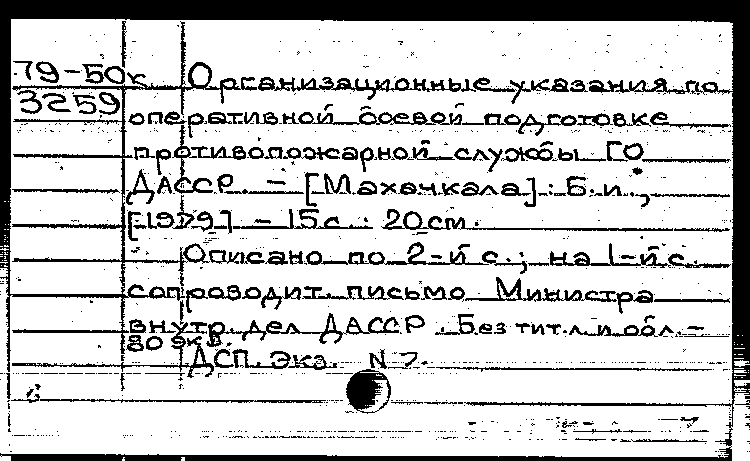 79-50к Организационные указания по
3259 оперативной боевой подготовке
противопожарной службы ГО
ДАССР. – [Махачкала] : Б.и.,
[1979] – 15с. : 20см.
Описано по 2-й с.; на 1-й с.
сопроводит. письмо Министра
внутр. дел ДАССР. Без тит.л. и обл. –
80 экз.
ДСП. Экз. N 7.